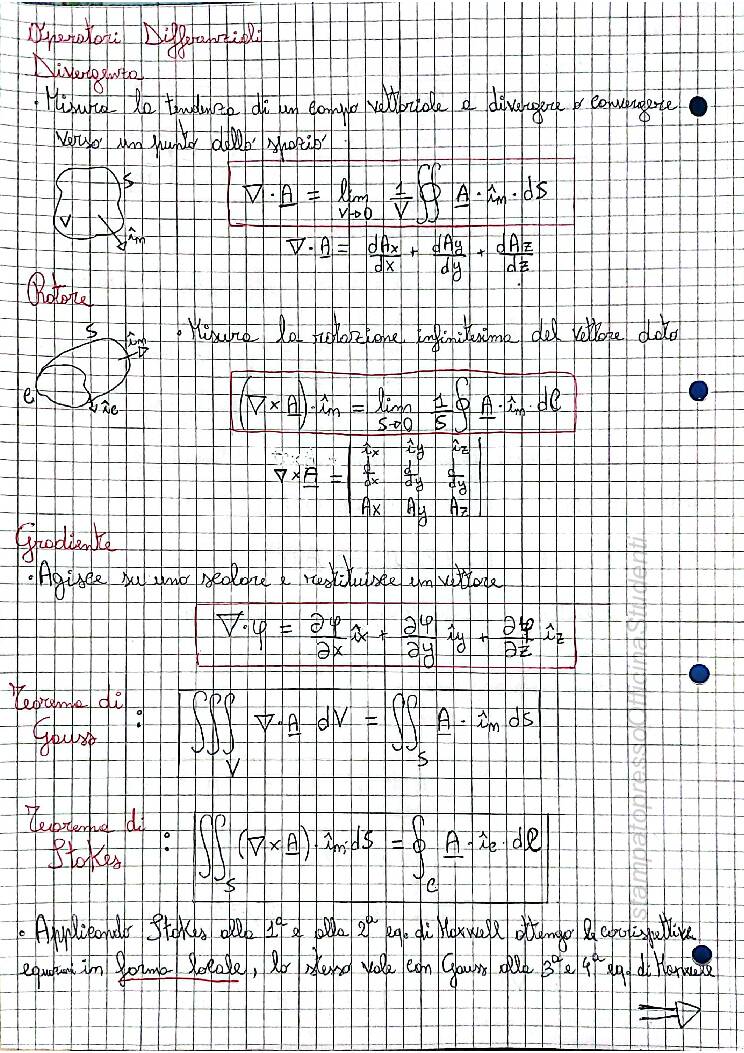 Operatori Differenziali
Divergenza
• Misura la tendenza di un campo vettoriale a divergere o convergere
verso un punto dello spazio
S
V
î_n
∇·A = lim_{V→0} 1/V ∯ A · î_n · dS
∇·A = dAx/dx + dAy/dy + dAz/dz
Rotore
• Misura la rotazione infinitesima del vettore dato
S
î_n
c
î_c
(∇×A)·î_n = lim_{S→0} 1/S ∮ A · î_n · dl
∇×A = | îx îy îz
d/dx d/dy d/dy
Ax Ay Az |
Gradiente
• Agisce su uno scalore e restituisce un vettore
∇·φ = ∂φ/∂x îx + ∂φ/∂y îy + ∂φ/∂z îz
Teorema di Gauss : ∭_V ∇·A dV = ∬_S A · î_n dS
Teorema di Stokes : ∬_S (∇×A)·î_n·dS = ∮_C A · î_c · dl
• Applicando Stokes alla 1ª e alla 2ª eq. di Maxwell ottengo le corrispettive
equazioni in forma locale, lo stesso vale con Gauss alla 3ª e 4ª eq. di Maxwell
stampatopressoOfficinaStudenti